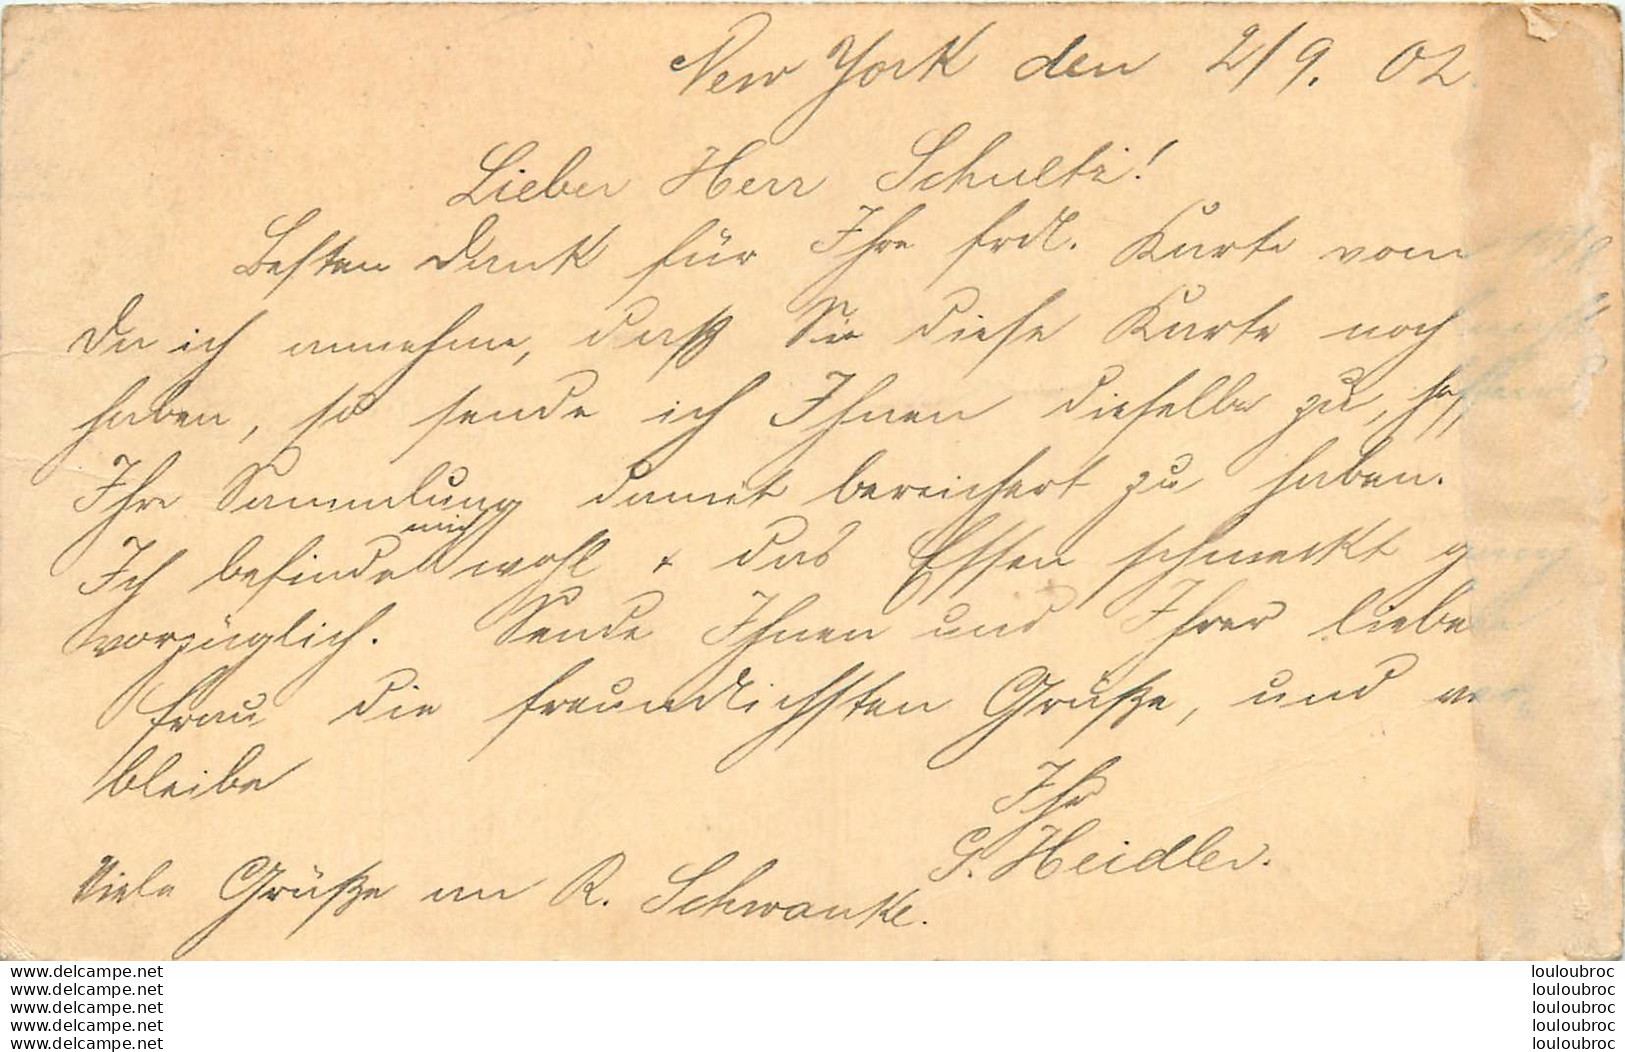 New York den 2/9. 02.
Lieber Herr Schultz!
Besten Dank für Ihre frdl. Karte vom
Da ich annehme, daß Sie diese Karte noch
haben, so sende ich Ihnen dieselbe zu,
Ihre Sammlung damit bereichert zu haben.
Ich befinde mich wohl & das Essen schmeckt
vorzüglich. Sende Ihnen und Ihrer lieben
Frau die freundlichsten Grüße, und ver
bleibe
Ihr
G. Heidler.
Viele Grüße an R. Schwanke.
www.delcampe.net
www.delcampe.net
www.delcampe.net
www.delcampe.net
www.delcampe.net
louloubroc
louloubroc
louloubroc
louloubroc
louloubroc